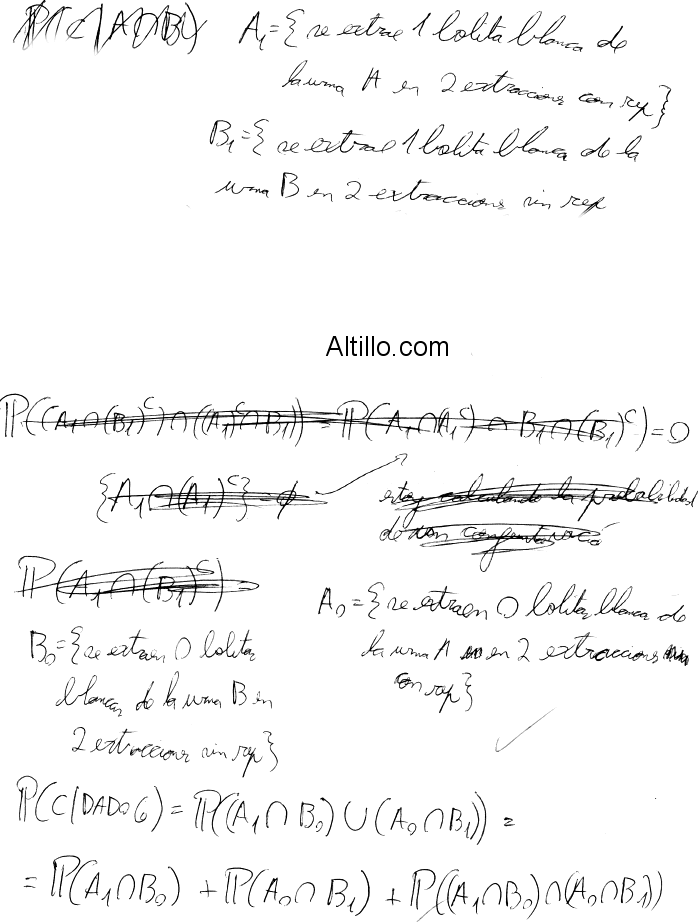 P(C|A∩B) A₁={se extrae 1 bolita blanca de
la urna A en 2 extracciones con rep}
B₁={se extrae 1 bolita blanca de la
urna B en 2 extracciones sin rep
Altillo.com
P((A₁∩(B₁)ᶜ)∩((A₁)ᶜ∩B₁)) = P(A₁∩(A₁)ᶜ ∩ B₁∩(B₁)ᶜ)=0
{A₁∩(A₁)ᶜ}=ϕ
estoy calculando la probabilidad
de
P(A₁∩(B₁)ᶜ)=
A₀={se extraen 0 bolitas blanca de
la urna A en 2 extracciones
con rep}
B₀={se extraen 0 bolitas
blancas de la urna B en
2 extracciones sin rep}
P(C/DADO 6) = P((A₁∩B₀)∪(A₀∩B₁)) =
= P(A₁∩B₀) + P(A₀∩B₁) + P((A₁∩B₀)∩(A₀∩B₁))